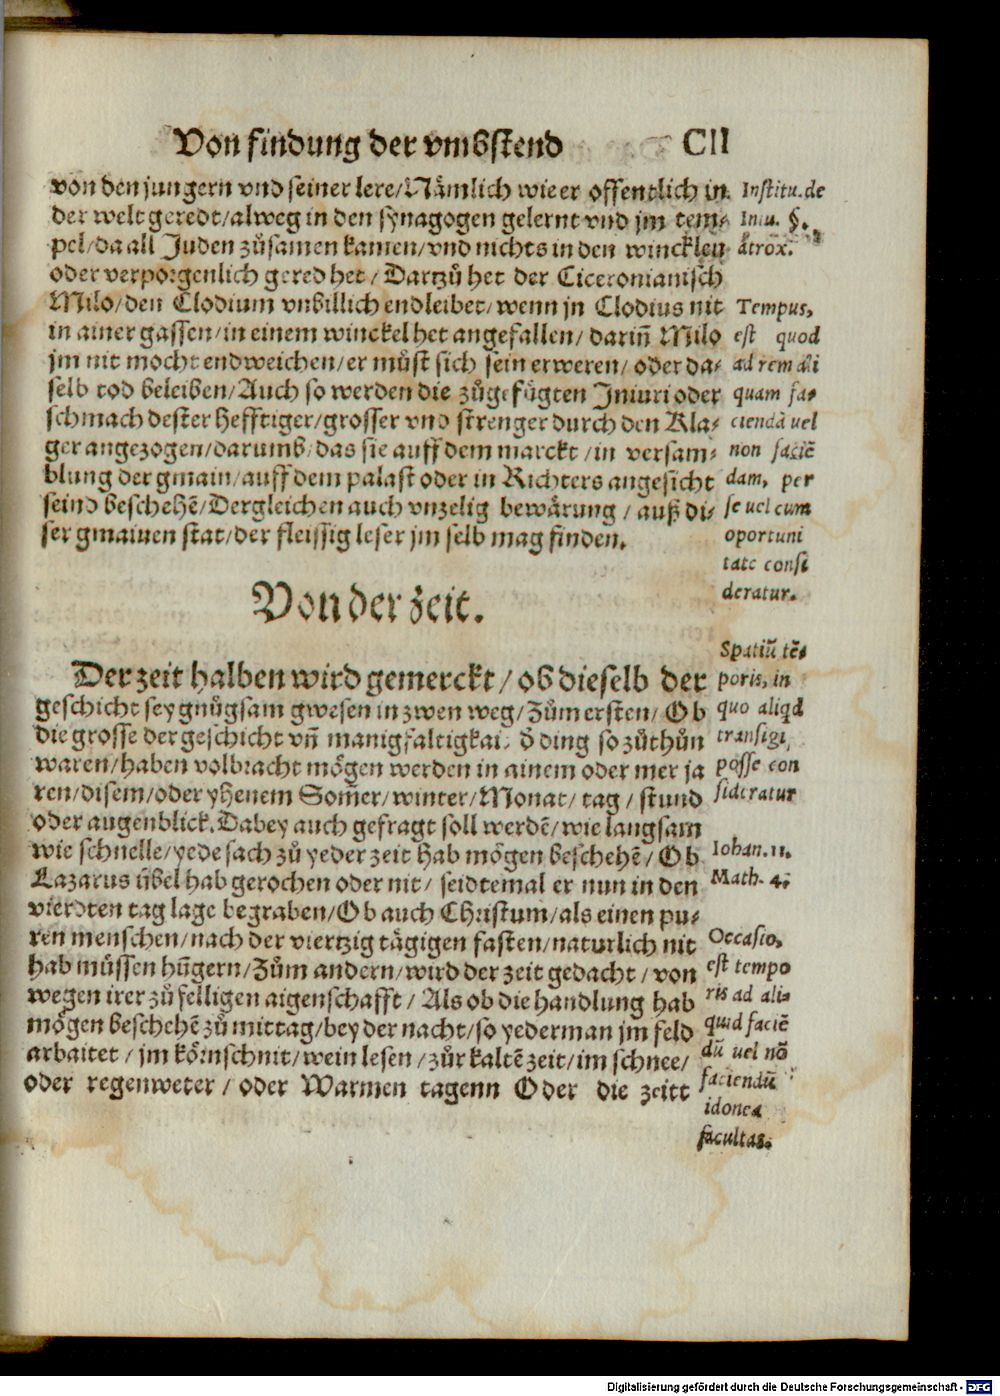 Von findung der vmbstend CII
von den jungern vnd seiner lere/Nämlich wie er offentlich in
der welt geredt/alweg in den synagogen gelernt vnd jm tem⸗
pel/da all Juden zůsamen kamen/vnd nichts in den wincklen
oder verporgenlich gered het/Dartzů het der Ciceronianisch
Milo/den Clodium vnbillich endleibet/wenn jn Clodius nit
in ainer gassen/in einem winckel het angefallen/darin̄ Milo
jm nit mocht endweichen/er můst sich sein erweren/oder da⸗
selb tod beleiben/Auch so werden die zůgefůgten Iniuri oder
schmach dester hefftiger/grosser vnd strenger durch den Kla⸗
ger angezogen/darumb/das sie auff dem marckt/in versam⸗
blung der gmain/auff dem palast oder in Richters angesicht
seind beschehē/Dergleichen auch vnzelig bewärung/auß di⸗
ser gmainen stat/der fleissig leser jm selb mag finden.
Institu. de
Iniu. §.
atrox.
Tempus,
est quod
ad rem ali
quam fa⸗
ciendā uel
non faciē
dam, per
se uel cum
oportuni
tate consi
deratur.
Von der zeit.
Der zeit halben wird gemerckt/ob dieselb der
geschicht sey gnůgsam gwesen in zwen weg/Zům ersten/Ob
die grosse der geschicht vn̄ manigfaltigkai, d̄ ding so zůthůn
waren/haben volbracht mögen werden in ainem oder mer ja
ren/disem/oder yhenem Som̄er/winter/Monat/tag/stund
oder augenblick. Dabey auch gefragt soll werdē/wie langsam
wie schnelle/yede sach zů yeder zeit hab mögen beschehē/Ob
Lazarus übel hab gerochen oder nit/seidtemal er nun in den
vierdten tag lage begraben/Ob auch Christum/als einen pu⸗
ren menschen/nach der viertzig tägigen fasten/naturlich nit
hab müssen hūgern/Zům andern/wird der zeit gedacht/von
wegen irer zůfelligen aigenschafft/Als ob die handlung hab
mögen beschehē zů mittag/bey der nacht/so yederman jm feld
arbaitet/jm körnschnit/wein lesen/zůr kaltē zeit/im schnee/
oder regenweter/oder Warmen tagenn Oder die zeitt
Spatiū tē⸗
poris, in
quo aliqd
transigi,
posse con
sideratur
Iohan. 11.
Math. 4.
Occasio,
est tempo
ris ad ali⸗
quid faciē
dū uel nō
faciendū
idonea
facultas.
Digitalisierung gefördert durch die Deutsche Forschungsgemeinschaft - DFG